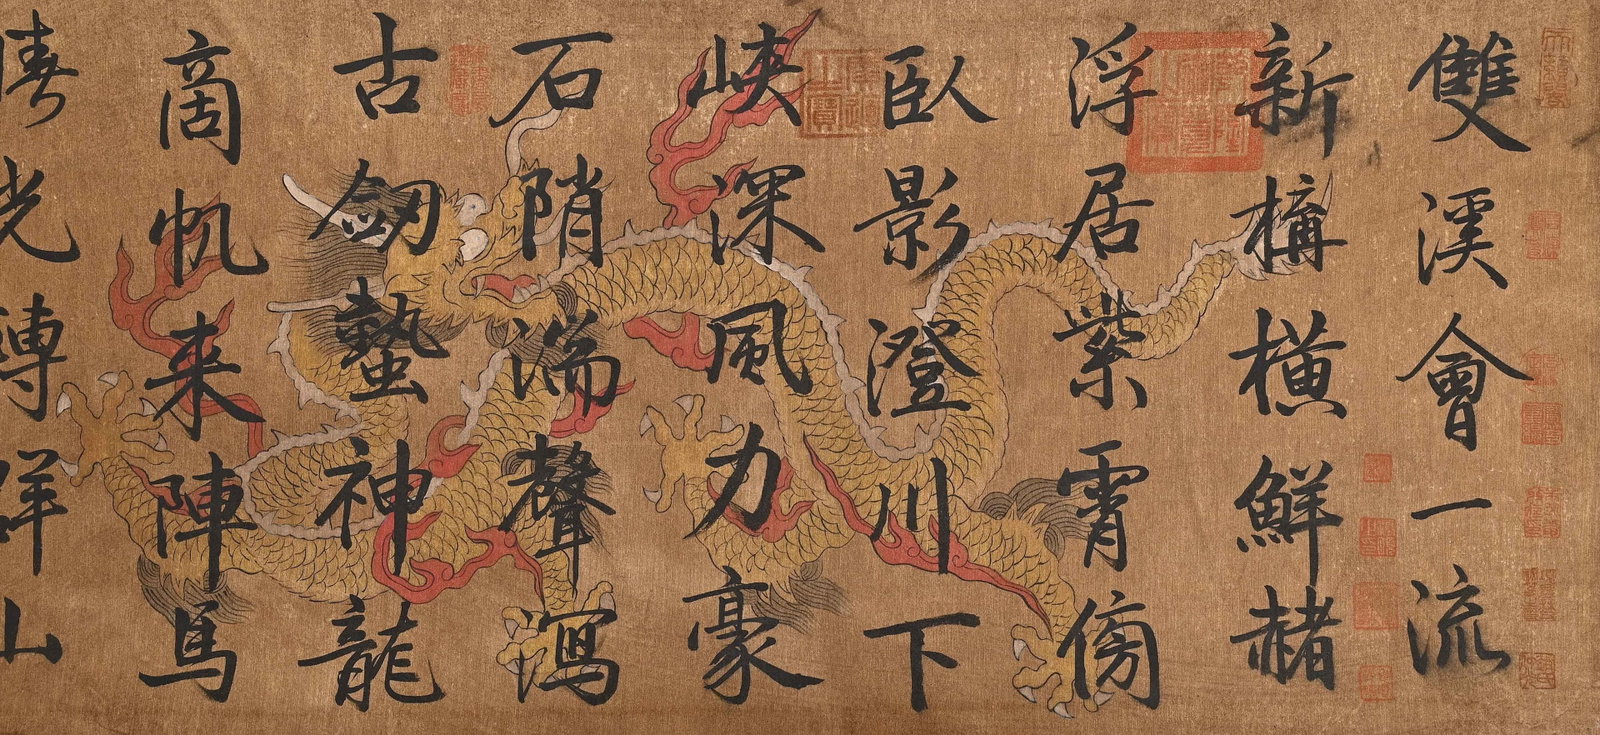 雙溪會一流
新構橫鮮赭
浮居紫霄傍
臥影澄川下
峽深風力豪
石陗湍聲瀉
古劒蟄神龍
商帆来陣馬
晴光轉群山